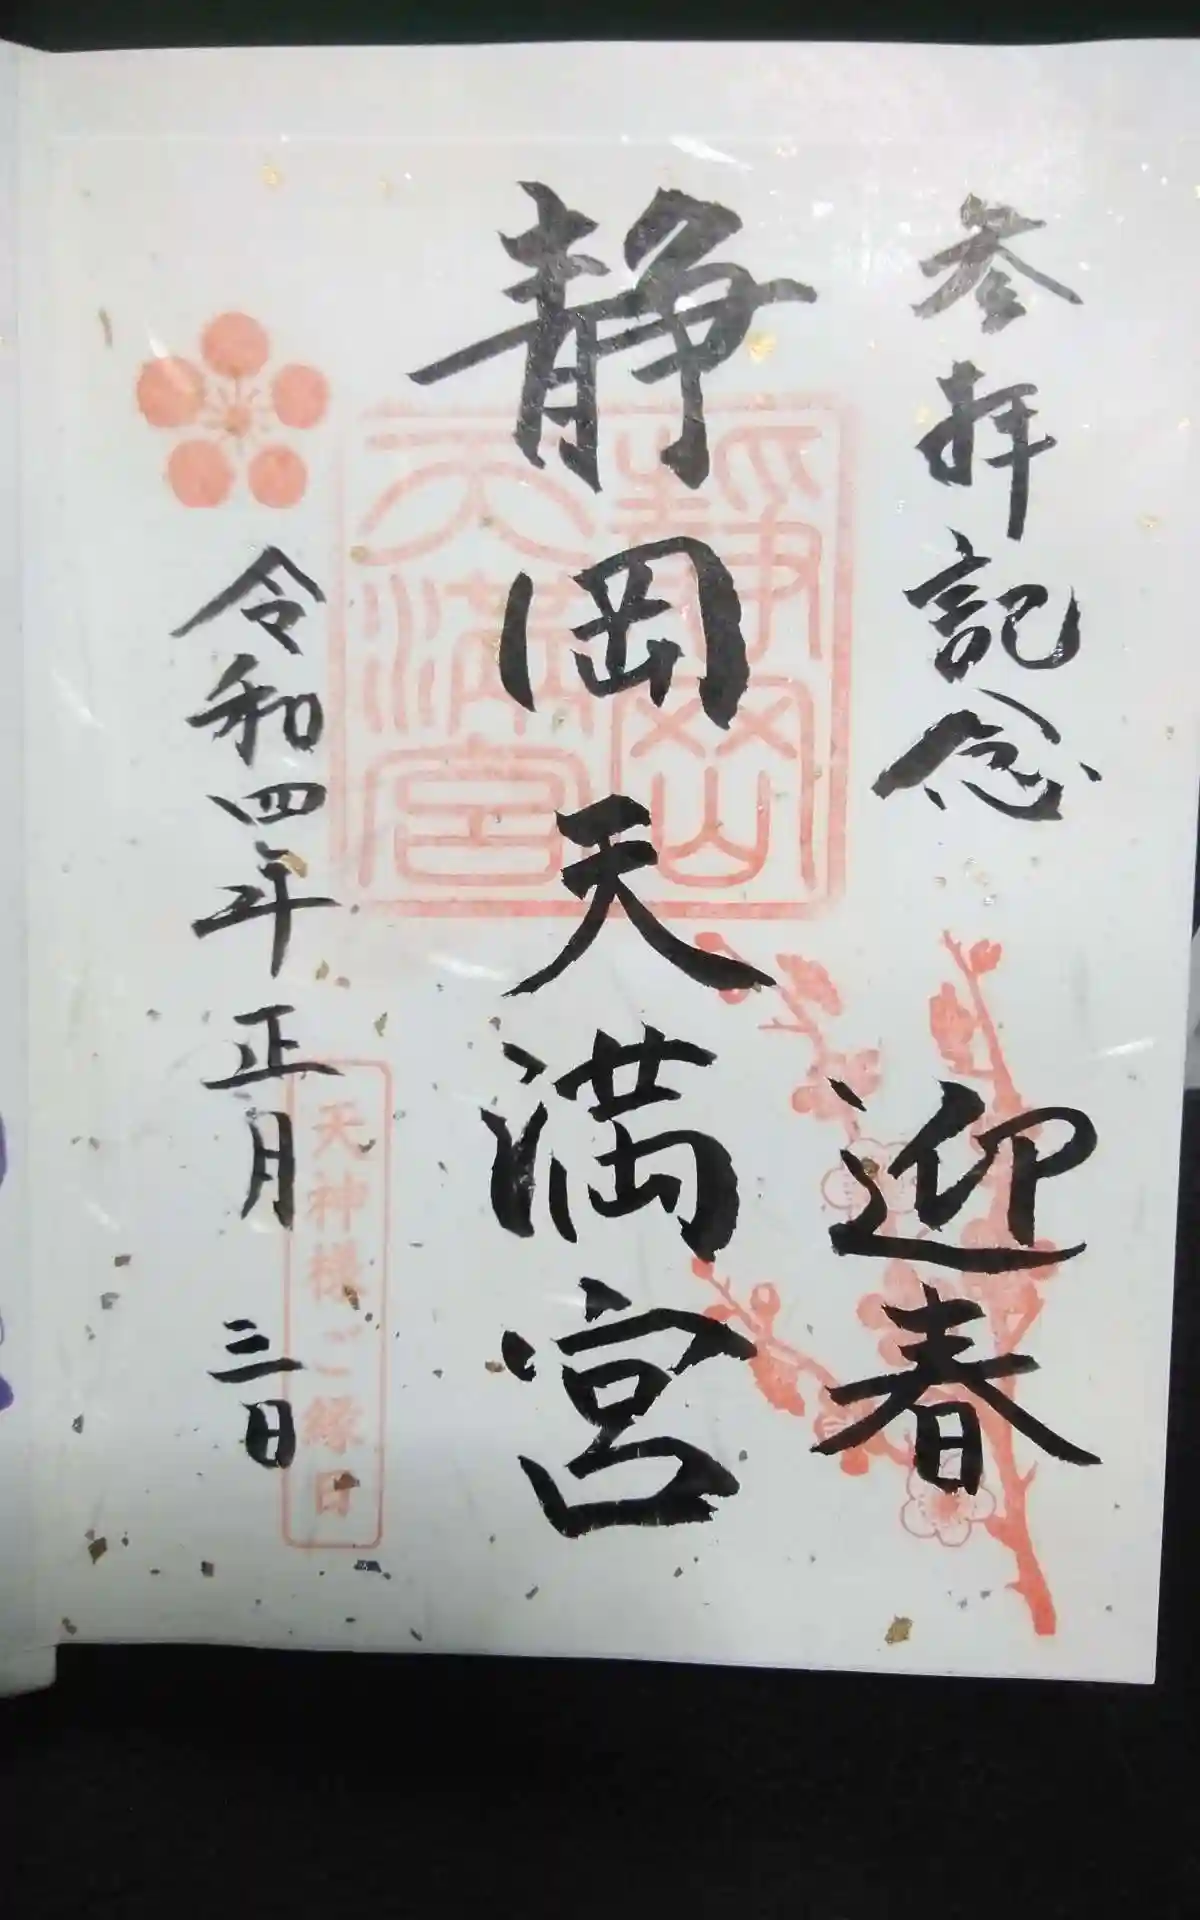 参拝記念
迎春
静岡天満宮
静岡
天満宮
令和四年正月三日
天神様ご縁日